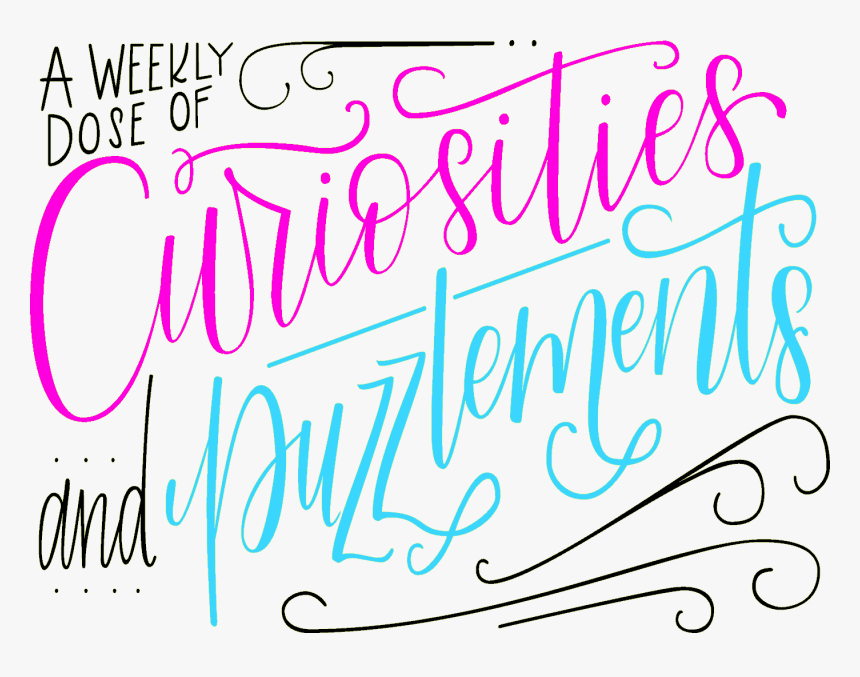 A WEEKLY
DOSE OF
Curiosities
and puzzlements